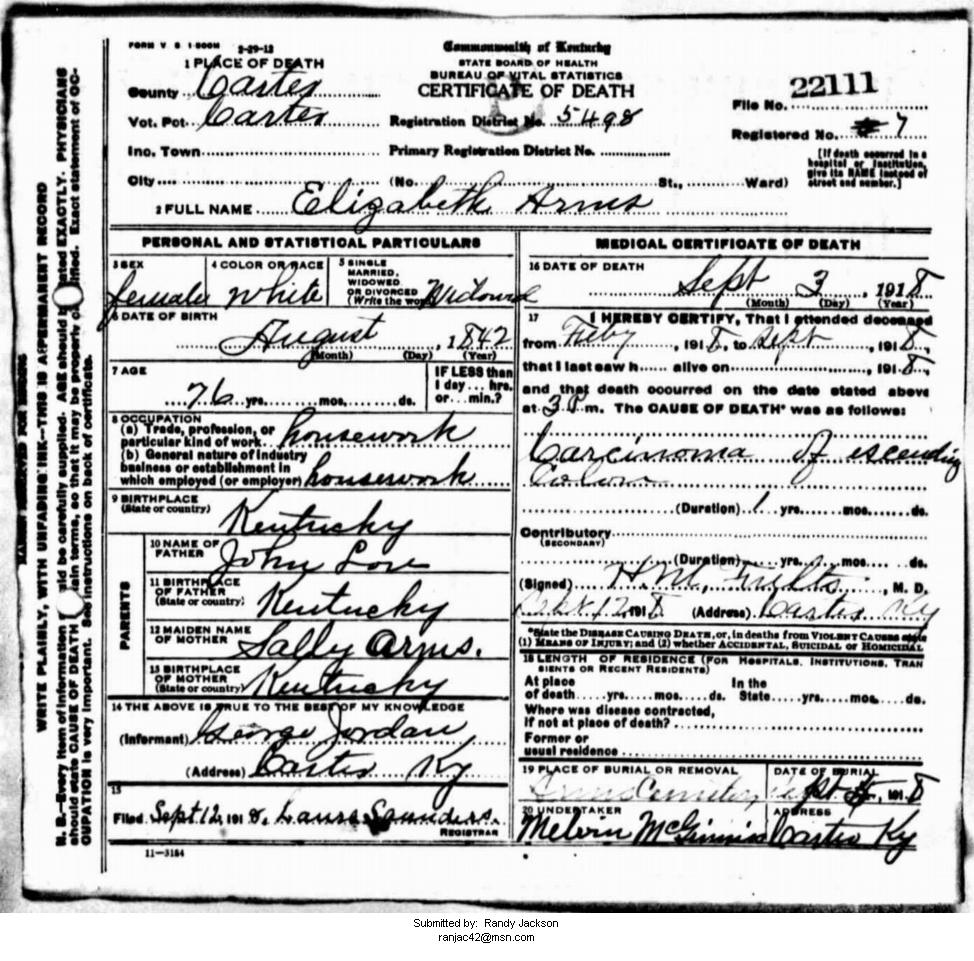 FORM V. S 1-500M 2-29-12
Commonwealth of Kentucky
STATE BOARD OF HEALTH
BUREAU OF VITAL STATISTICS
CERTIFICATE OF DEATH
1 PLACE OF DEATH
County Carter
Vot. Pct. Carter
Inc. Town
City
Registration District No. 5498
Primary Registration District No.
(No. St., Ward)
File No. 22111
Registered No. 7
[If death occurred in a hospital or institution, give its NAME instead of street and number.]
2 FULL NAME Elizabeth Arms
PERSONAL AND STATISTICAL PARTICULARS
3 SEX female
4 COLOR OR RACE White
5 SINGLE MARRIED, WIDOWED OR DIVORCED (Write the word) Widowed
6 DATE OF BIRTH
August , 1842
(Month) (Day) (Year)
7 AGE
76 yrs. mos. ds.
IF LESS than 1 day ... hrs. or ... min.?
8 OCCUPATION
(a) Trade, profession, or particular kind of work housework
(b) General nature of industry business or establishment in which employed (or employer) housework
9 BIRTHPLACE (State or country) Kentucky
PARENTS
10 NAME OF FATHER John
11 BIRTHPLACE OF FATHER (State or country) Kentucky
12 MAIDEN NAME OF MOTHER Sally Arms.
13 BIRTHPLACE OF MOTHER (State or country) Kentucky
14 THE ABOVE IS TRUE TO THE BEST OF MY KNOWLEDGE
(Informant) George Jordan
(Address) Carter Ky
15
Filed Sept 12, 1918. Laura Saunders.
REGISTRAR
11-3184
MEDICAL CERTIFICATE OF DEATH
16 DATE OF DEATH
Sept 3 , 1918
(Month) (Day) (Year)
17 I HEREBY CERTIFY, That I attended deceased
from Feby , 1918, to Sept , 1918,
that I last saw h alive on , 1918,
and that death occurred on the date stated above
at 3 P m. The CAUSE OF DEATH* was as follows:
Carcinoma of escending
Colon
(Duration) 1 yrs. mos. ds.
Contributory
(SECONDARY)
(Duration) yrs. mos. ds.
(Signed) H.M. Fults , M. D.
Sept. 12 1918 (Address) Carter Ky
*State the DISEASE CAUSING DEATH, or, in deaths from VIOLENT CAUSES state
(1) MEANS OF INJURY; and (2) whether ACCIDENTAL, SUICIDAL or HOMICIDAL
18 LENGTH OF RESIDENCE (FOR HOSPITALS, INSTITUTIONS, TRAN
SIENTS OR RECENT RESIDENTS)
At place of death yrs. mos. ds. In the State yrs. mos. ds.
Where was disease contracted,
if not at place of death?
Former or
usual residence
19 PLACE OF BURIAL OR REMOVAL
Arms Cemetery
DATE OF BURIAL
Sept , 1918
20 UNDERTAKER
Melvin McGinnis
ADDRESS
Carter Ky
WRITE PLAINLY, WITH UNFADING INK—THIS IS A PERMANENT RECORD
N. B.—Every item of information should be carefully supplied. AGE should be stated EXACTLY. PHYSICIANS
should state CAUSE OF DEATH in plain terms, so that it may be properly classified. Exact statement of OC-
CUPATION is very important. See instructions on back of certificate.
Submitted by: Randy Jackson
ranjac42@msn.com